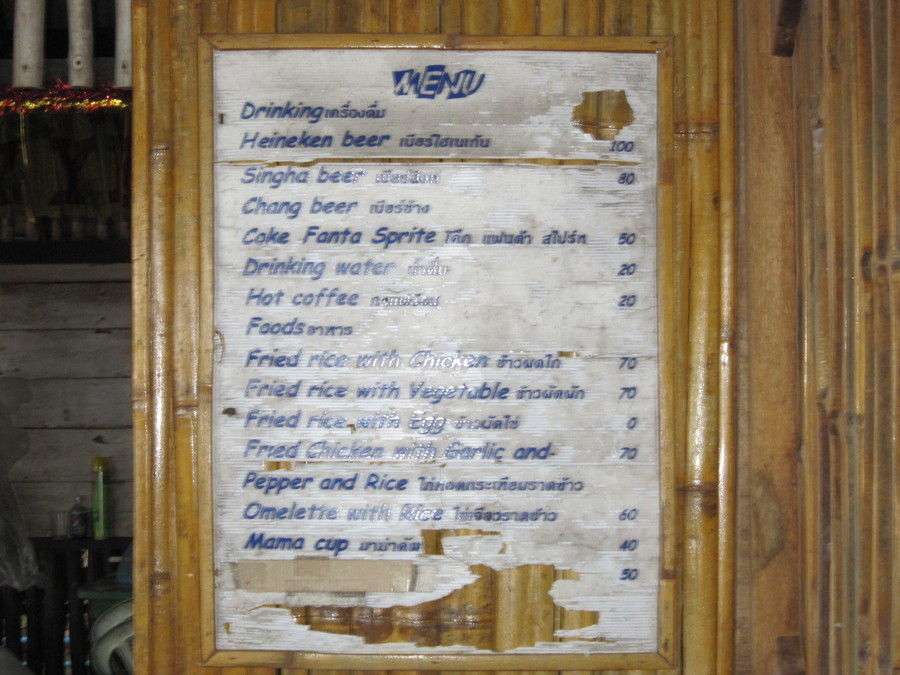 MENU
Drinking เครื่องดื่ม
Heineken beer เบียร์ไฮเนเก้น 100
Singha beer เบียร์สิงห์ 80
Chang beer เบียร์ช้าง
Coke Fanta Sprite โค๊ก แฟนต้า สไปร์ท 50
Drinking water น้ำดื่ม 20
Hot coffee 20
Foods อาหาร
Fried rice with Chicken ข้าวผัดไก่ 70
Fried rice with Vegetable ข้าวผัดผัก 70
Fried rice with Egg ข้าวผัดไข่ 0
Fried Chicken with Garlic and- 70
Pepper and Rice ไก่ทอดกระเทียมราดข้าว
Omelette with Rice ไข่เจียวราดข้าว 60
Mama cup มาม่าคัพ 40
50